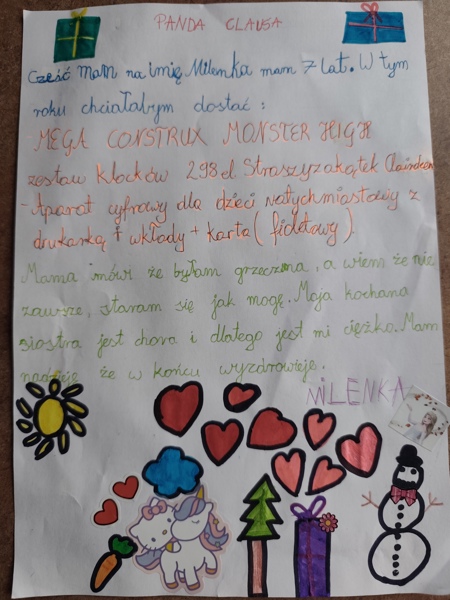 PANDA CLAUSA
Cześć mam na imię Milenka mam 7 lat. W tym
roku chciałabym dostać:
MEGA CONSTRUX MONSTER HIGH
zestaw klocków 298 el Straszyzakątek Clawdeen
- Aparat cyfrowy dla dzieci natychmiastowy z
drukarką + wkłady + karta (fioletowy)
Mama mówi że byłam grzeczna, a wiem że nie
zawsze, staram się jak mogę. Moja kochana
siostra jest chora i dlatego jest mi ciężko. Mam
nadzieję że w końcu wyzdrowieje.
MILENKA